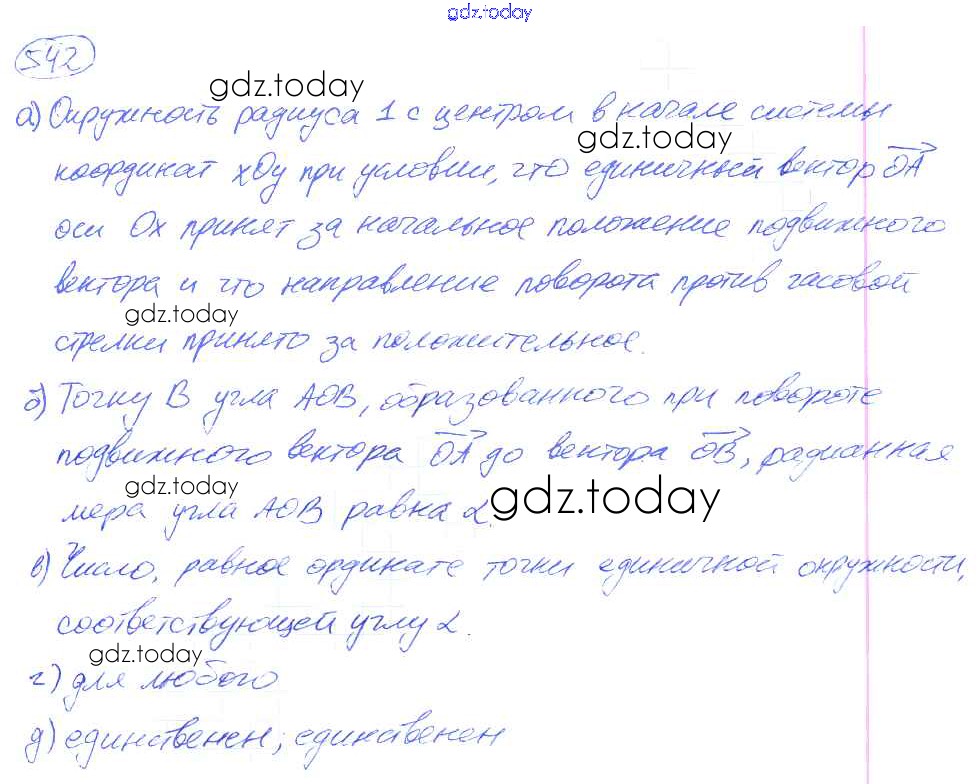 gdz.today
542
gdz.today
а) Окружность радиуса 1 с центром в начале системы
gdz.today
координат xOy при условии, что единичный вектор OA
оси Ox принят за начальное положение подвижного
вектора и что направление поворота против часовой
gdz.today
стрелки принято за положительное.
б) Точку B угла AOB, образованного при повороте
подвижного вектора OA до вектора OB, радианная
gdz.today gdz.today
мера угла AOB равна α.
в) Число, равное ординате точки единичной окружности,
соответствующей углу α.
gdz.today
г) для любого
д) единственен; единственен